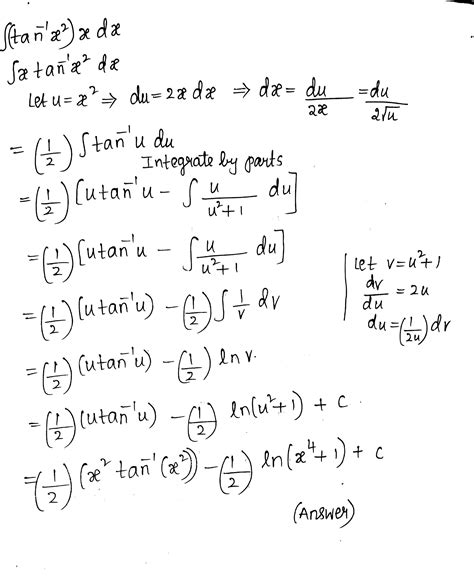 ∫(tan⁻¹x²)x dx
∫x tan⁻¹x² dx
Let u = x² ⇒ du = 2x dx ⇒ dx = du/2x = du/2√u
= (1/2) ∫tan⁻¹u du
Integrate by parts
= (1/2) [u tan⁻¹u − ∫ u/(u²+1) du]
= (1/2) [u tan⁻¹u − ∫ u/(u²+1) du]
Let v = u²+1
dv/du = 2u
du = (1/2u) dv
= (1/2) (u tan⁻¹u) − (1/2) ∫ 1/v dv
= (1/2) (u tan⁻¹u) − (1/2) ln v.
= (1/2) (u tan⁻¹u) − (1/2) ln(u²+1) + c.
= (1/2) (x² tan⁻¹(x²)) − (1/2) ln(x⁴+1) + c
(Answer)